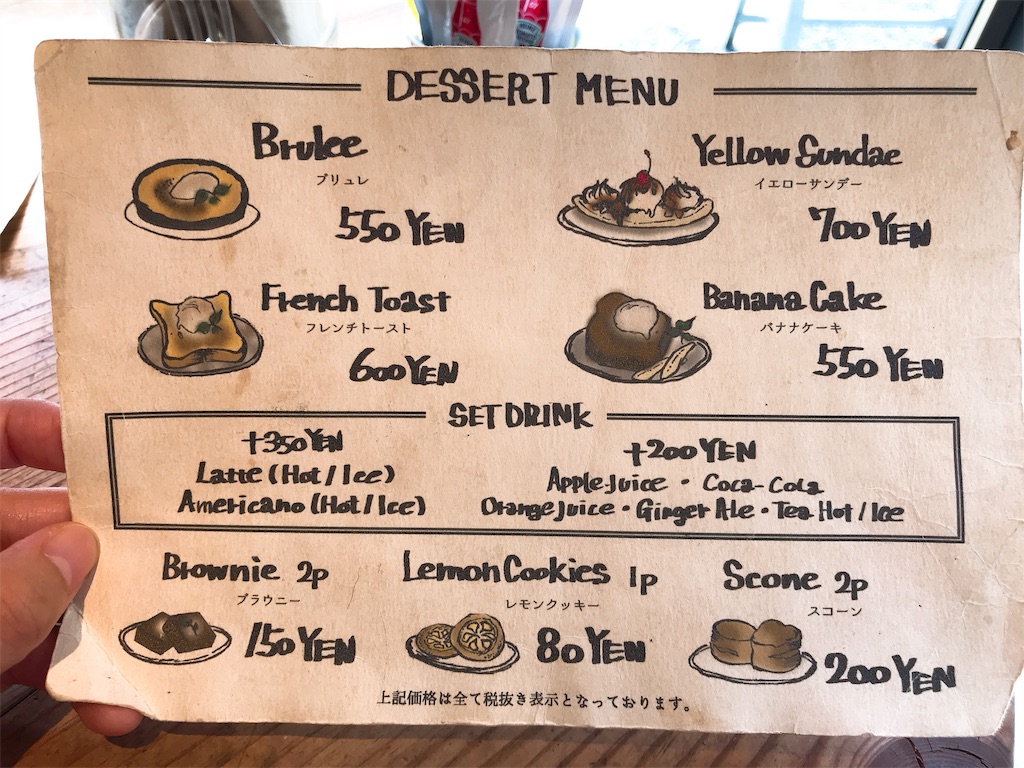 DESSERT MENU
Brulee
ブリュレ
550 YEN
Yellow Sundae
イエローサンデー
700 YEN
French Toast
フレンチトースト
600 YEN
Banana Cake
バナナケーキ
550 YEN
SET DRINK
+350 YEN
Latte (Hot / Ice)
Americano (Hot / Ice)
+200 YEN
Apple Juice ・ Coca-Cola
Orange Juice ・ Ginger Ale ・ Tea Hot / Ice
Brownie 2p
ブラウニー
150 YEN
Lemon Cookies 1p
レモンクッキー
80 YEN
Scone 2p
スコーン
200 YEN
上記価格は全て税抜き表示となっております。